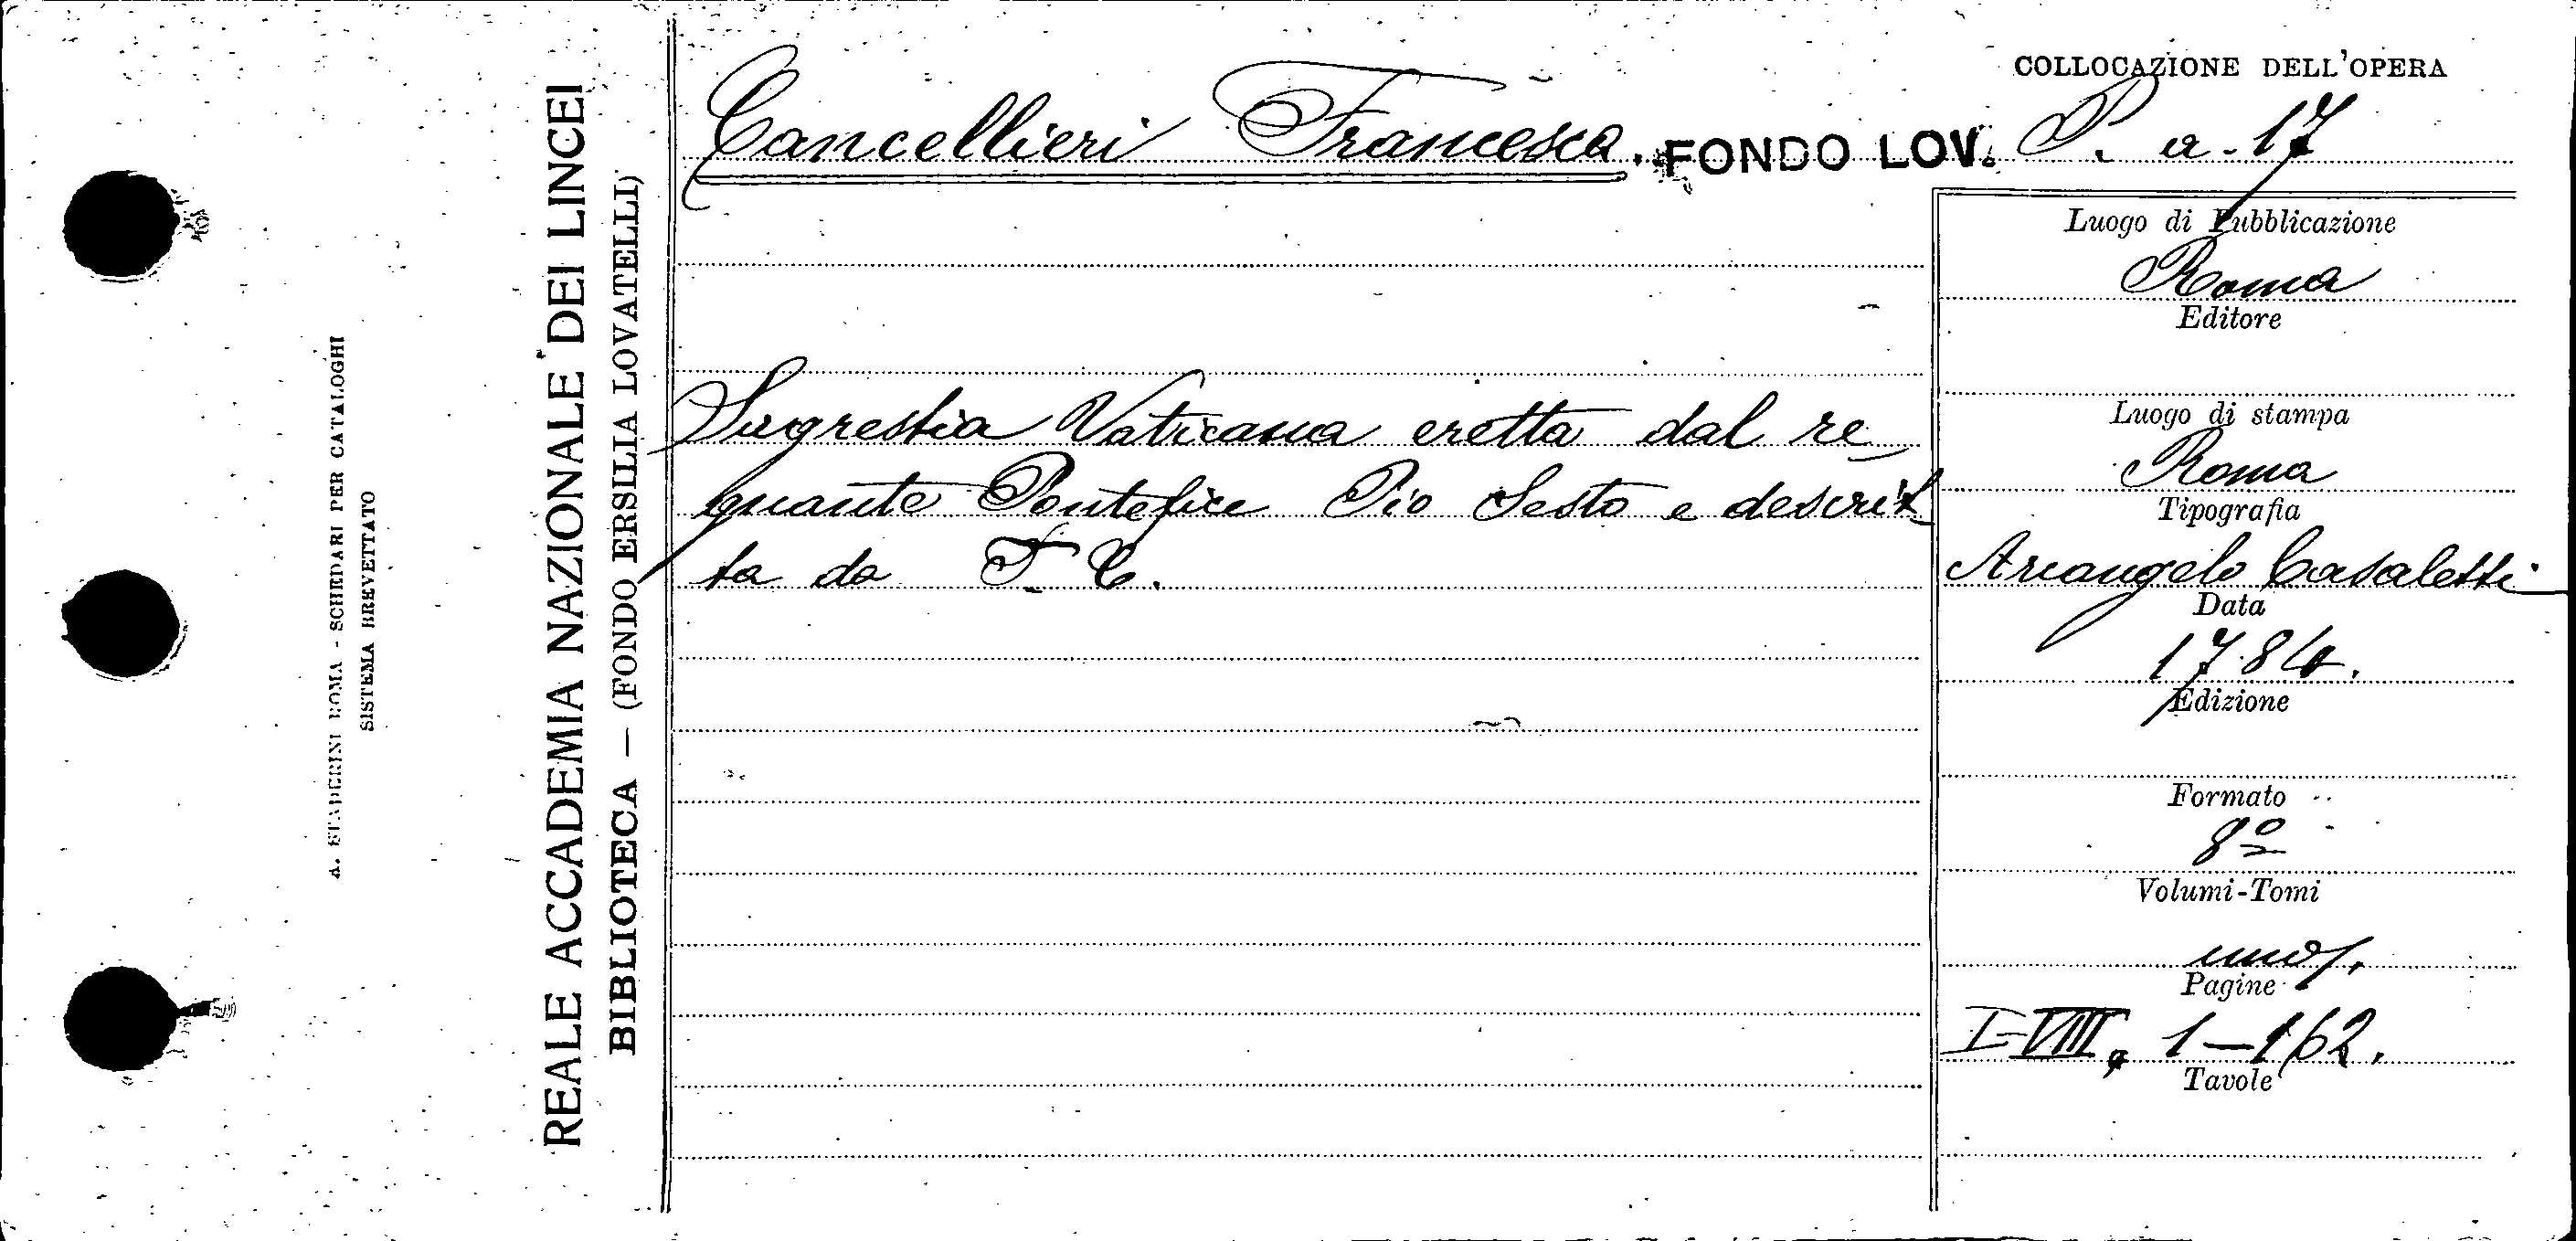 COLLOCAZIONE DELL'OPERA
Cancellieri Francesco. FONDO LOV. P. a. 17
REALE ACCADEMIA NAZIONALE DEI LINCEI
BIBLIOTECA — (FONDO ERSILIA LOVATELLI)
A. STADERINI ROMA - SCHEDARI PER CATALOGHI
SISTEMA BREVETTATO
Sagrestia Vaticana eretta dal re
gnante Pontefice Pio Sesto e descrit
ta da F. C.
Luogo di Pubblicazione
Roma
Editore
Luogo di stampa
Roma
Tipografia
Arcangelo Casaletti
Data
1784.
Edizione
Formato
8º
Volumi-Tomi
uno.
Pagine
I-VIII, 1-162.
Tavole